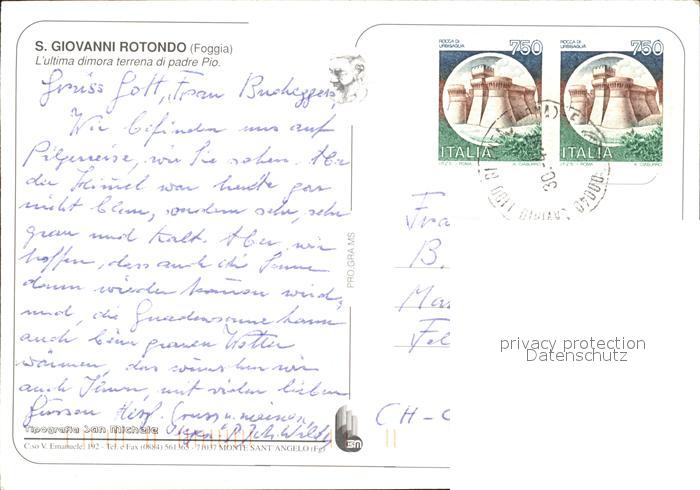 S. GIOVANNI ROTONDO (Foggia)
L'ultima dimora terrena di padre Pio.
Grüss Gott, Frau Buchegger,
Wir befinden uns auf
Pilgerreise, wie Sie sehen. Aber
der Himmel war heute gar
nicht blau, sondern sehr, sehr
grau und kalt. Aber wir
hoffen, dass auch die Sonne
dann wieder kommen wird,
und, die Gnadensonne kann
auch beim grauen Wetter
wärmen, das wünschen wir
auch Ihnen, mit vielen lieben
Grüssen Herzl. Gruss u. meinen
Tipografia San Michele
C.so V. Emanuele, 192 - Tel. e Fax (0884) 561365 - 71037 MONTE SANT'ANGELO (Fg)
PRO.GRA.MS
ROCCA DI
URBISAGLIA
750
ITALIA
I.P.Z.S. - ROMA
ROCCA DI
URBISAGLIA
750
ITALIA
I.P.Z.S. - ROMA
00040
30
Fra
B.
Ma
Fel
CH-
privacy protection
Datenschutz